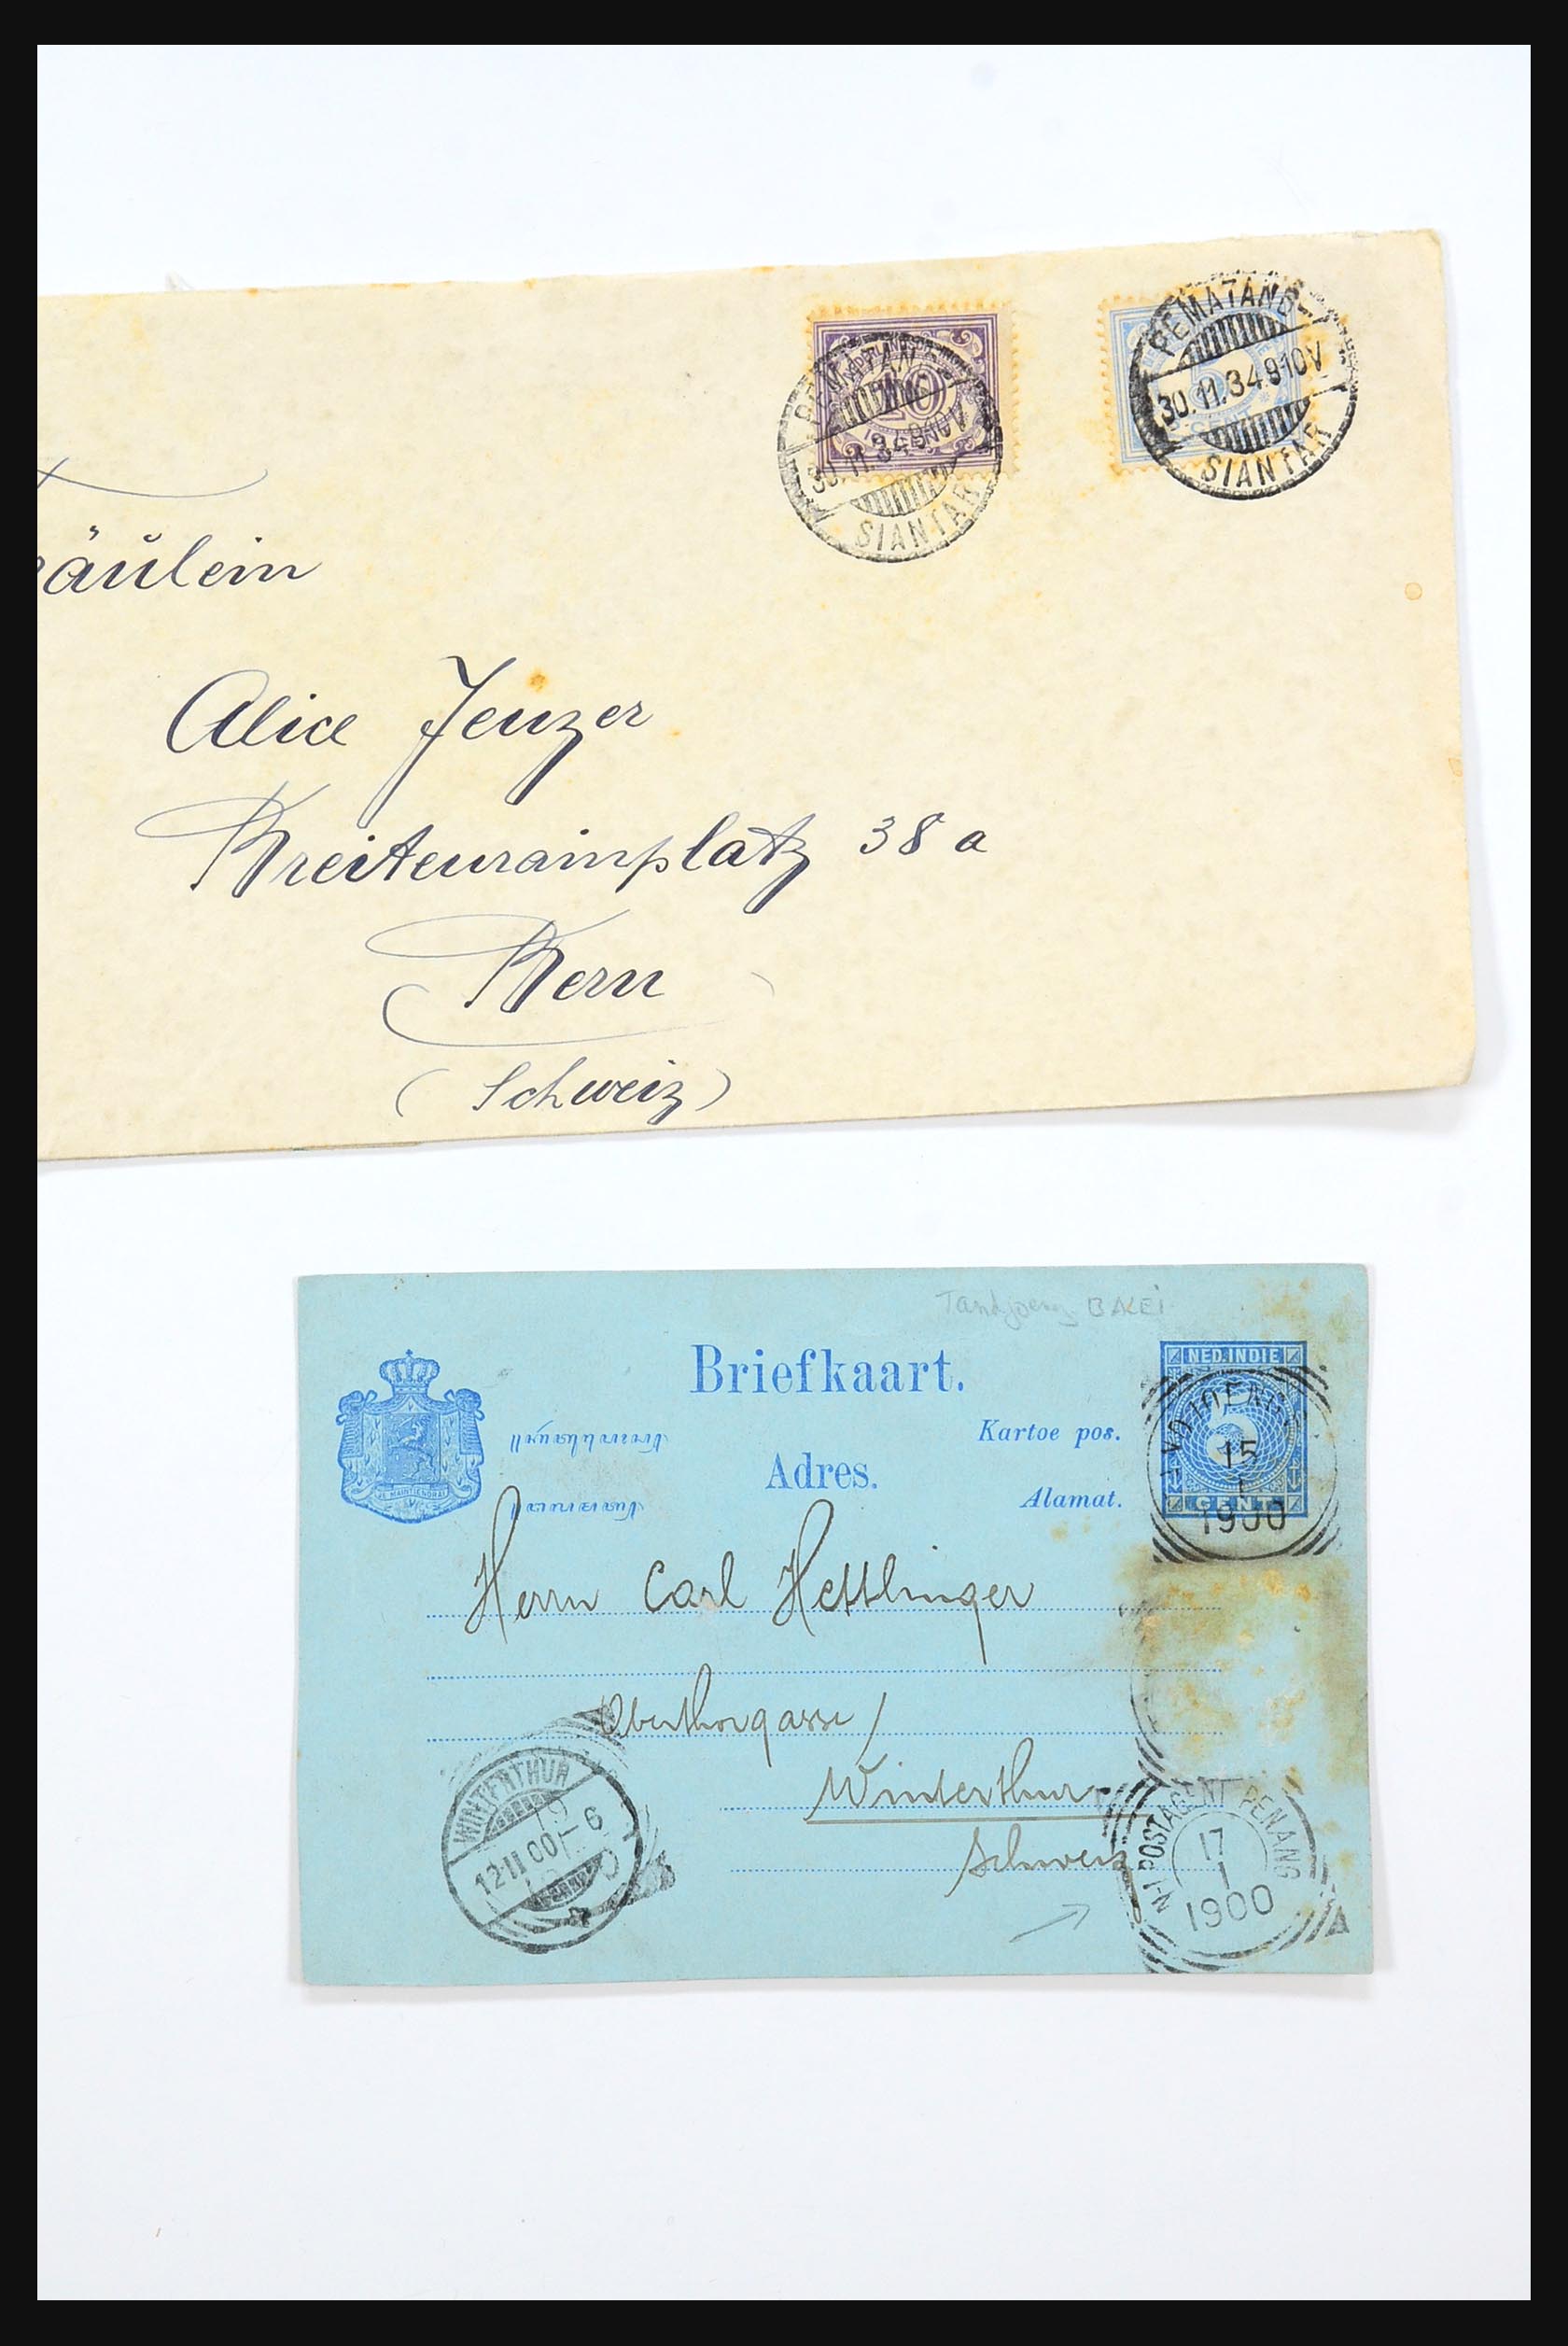 10
CENT
PEMATANG
30.11.34.9-10V
SIANTAR
5
CENT
PEMATANG
30.11.34.9-10V
SIANTAR
räulein
Alice Jenzer
Breitenrainplatz 38 a
Bern
(Schweiz)
Tandjoeng BALEi
Briefkaart.
Kartoe pos.
Adres.
Alamat.
JE MAINTIENDRAI
NED. INDIE
5
CENT
15
1
1900
Herrn Carl Hettlinger
Oberthorgasse /
Winterthur
Schweiz
WINTERTHUR
12.II.00.-6
N-I POSTAGENT PENANG
17
1
1900